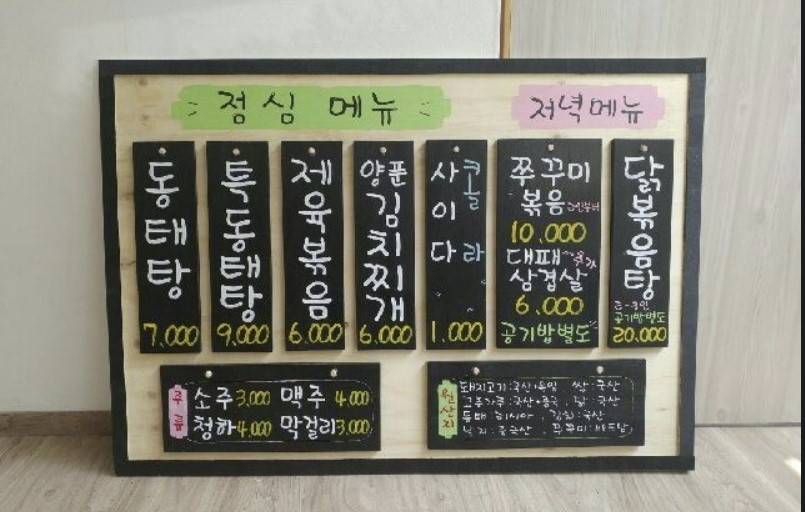 점심 메뉴
저녁메뉴
동태탕
7,000
특동태탕
9,000
제육볶음
6,000
양푼김치찌개
6,000
사이다
콜라
1,000
쭈꾸미
볶음
10,000
대패
추가
삼겹살
6,000
공기밥별도
닭볶음탕
공기밥별도
20,000
주류
소주 3,000 맥주 4,000
청하 4,000 막걸리 3,000
원산지
돼지고기:국산·독일 쌀:국산
고추가루:국산·중국 닭:국산
동태:러시아 김치:국산
낙지:중국산 쭈꾸미:베트남